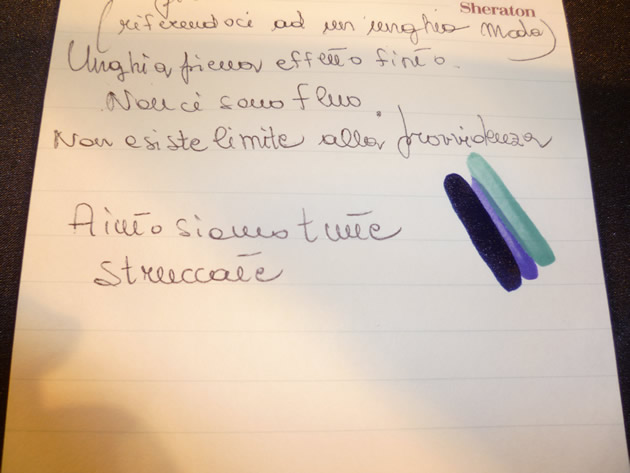 Sheraton
(riferendoci ad un unghia moda)
Unghia piena effetto finto.
Non ci sono fluo
Non esiste limite alla provvidenza
Aiuto siamo tutte
struccate